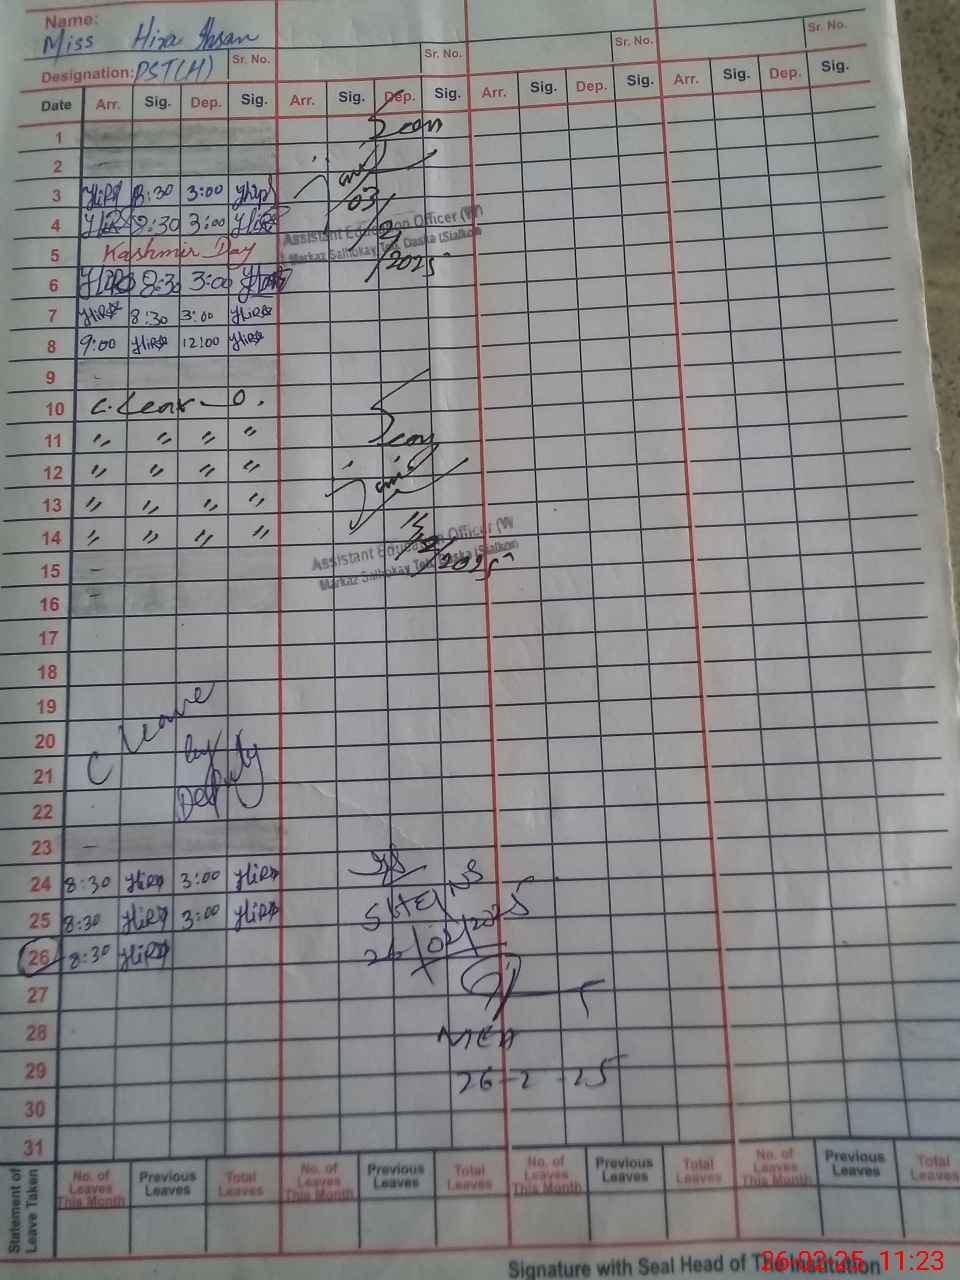 Name:
Miss Hira Ahsan
Designation: PST(H) Sr. No. Sr. No. Sr. No. Sr. No.
Date Arr. Sig. Dep. Sig. Arr. Sig. Dep. Sig. Arr. Sig. Dep. Sig. Arr. Sig. Dep. Sig.
1
2
3 Hira 8:30 3:00 Hira
03/2/2025
4 Hira 8:30 3:00 Hira
Assistant Education Officer (W)
Markaz Salhokay Teh. Daska (Sialkot
5 Kashmir Day
6 Hira 8:30 3:00 Hira
7 Hira 8:30 3:00 Hira
8 9:00 Hira 12:00 Hira
9 -
10 C. Leave
11 〃 〃 〃 〃
12 〃 〃 〃 〃
13 〃 〃 〃 〃
14 〃 〃 〃 〃
Assistant Education Officer (W
Markaz Salhokay Teh. Daska (Sialkot
/2025
15 -
16 -
17
18
19
20
21
22
C Leave
by
Deputy
23 -
24 8:30 Hira 3:00 Hira
25 8:30 Hira 3:00 Hira
26 8:30 Hira
26/02/2025
27
28
MEA
29
26-2-25
30
31
Statement of Leave Taken
No. of Leaves This Month Previous Leaves Total Leaves No. of Leaves This Month Previous Leaves Total Leaves No. of Leaves This Month Previous Leaves Total Leaves No. of Leaves This Month Previous Leaves Total Leaves
Signature with Seal Head of The Institution
26.02.25 11:23